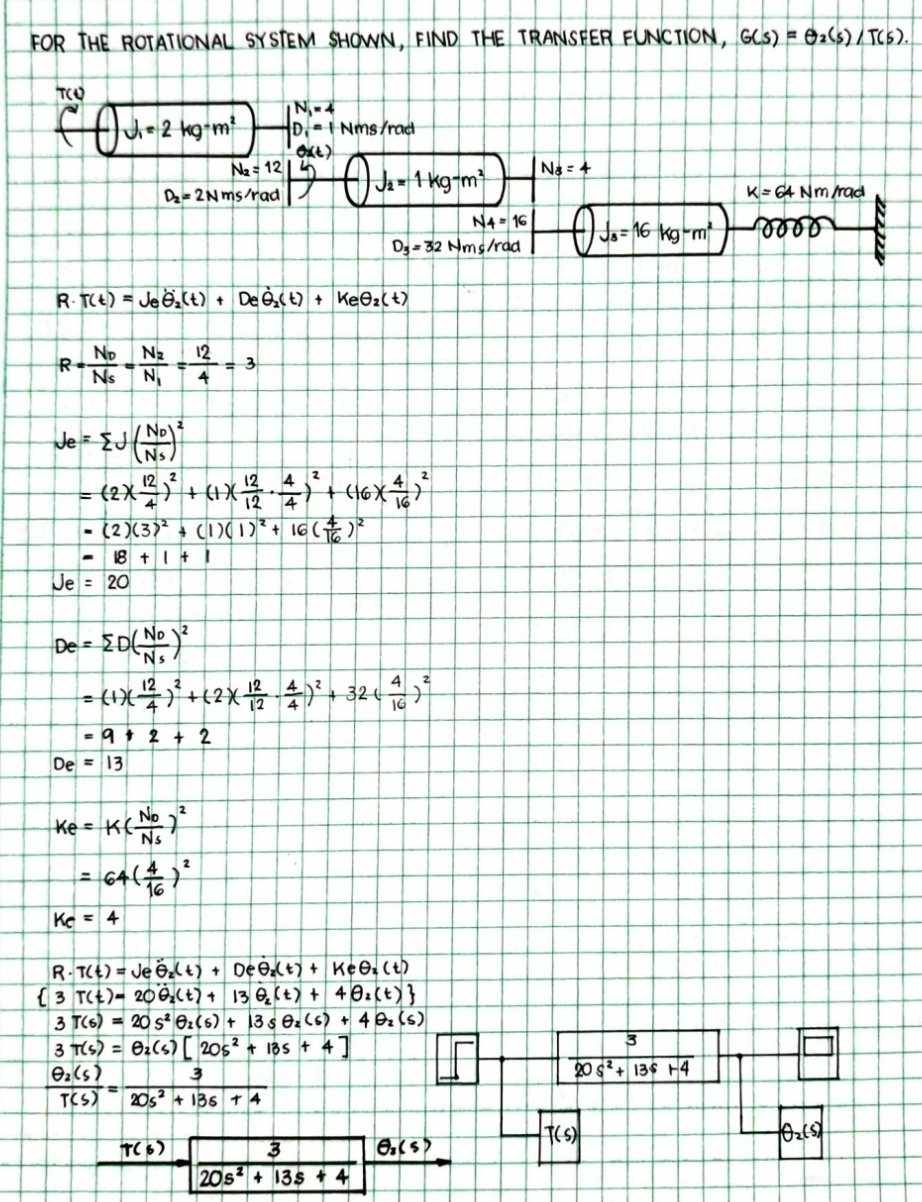 FOR THE ROTATIONAL SYSTEM SHOWN, FIND THE TRANSFER FUNCTION, G(s) = θ₂(s) / T(s).
T(t)
J₁ = 2 kg-m²
N₁ = 4
D₁ = 1 Nms/rad
θ₂(t)
N₂ = 12
D₂ = 2 Nms/rad
J₂ = 1 kg-m²
N₃ = 4
K = 64 Nm/rad
N4 = 16
D₃ = 32 Nms/rad
J₃ = 16 kg-m²
R·T(t) = Je θ̈₂(t) + De θ̇₂(t) + Ke θ₂(t)
R = N_D/N_S = N₂/N₁ = 12/4 = 3
Je = ΣJ (N_D/N_S)²
= (2)(12/4)² + (1)(12/12 · 4/4)² + (16)(4/16)²
= (2)(3)² + (1)(1)² + 16(4/16)²
= 18 + 1 + 1
Je = 20
De = ΣD(N_D/N_S)²
= (1)(12/4)² + (2)(12/12 · 4/4)² + 32(4/16)²
= 9 + 2 + 2
De = 13
Ke = K(N_D/N_S)²
= 64(4/16)²
Ke = 4
R·T(t) = Je θ̈₂(t) + De θ̇₂(t) + Ke θ₂(t)
{ 3 T(t) = 20 θ̈₂(t) + 13 θ̇₂(t) + 4 θ₂(t) }
3 T(s) = 20 s² θ₂(s) + 13 s θ₂(s) + 4 θ₂(s)
3 T(s) = θ₂(s) [ 20s² + 13s + 4 ]
θ₂(s)/T(s) = 3/(20s² + 13s + 4)
3/(20s² + 13s + 4)
T(s)
θ₂(s)
T(s)
3/(20s² + 13s + 4)
θ₂(s)